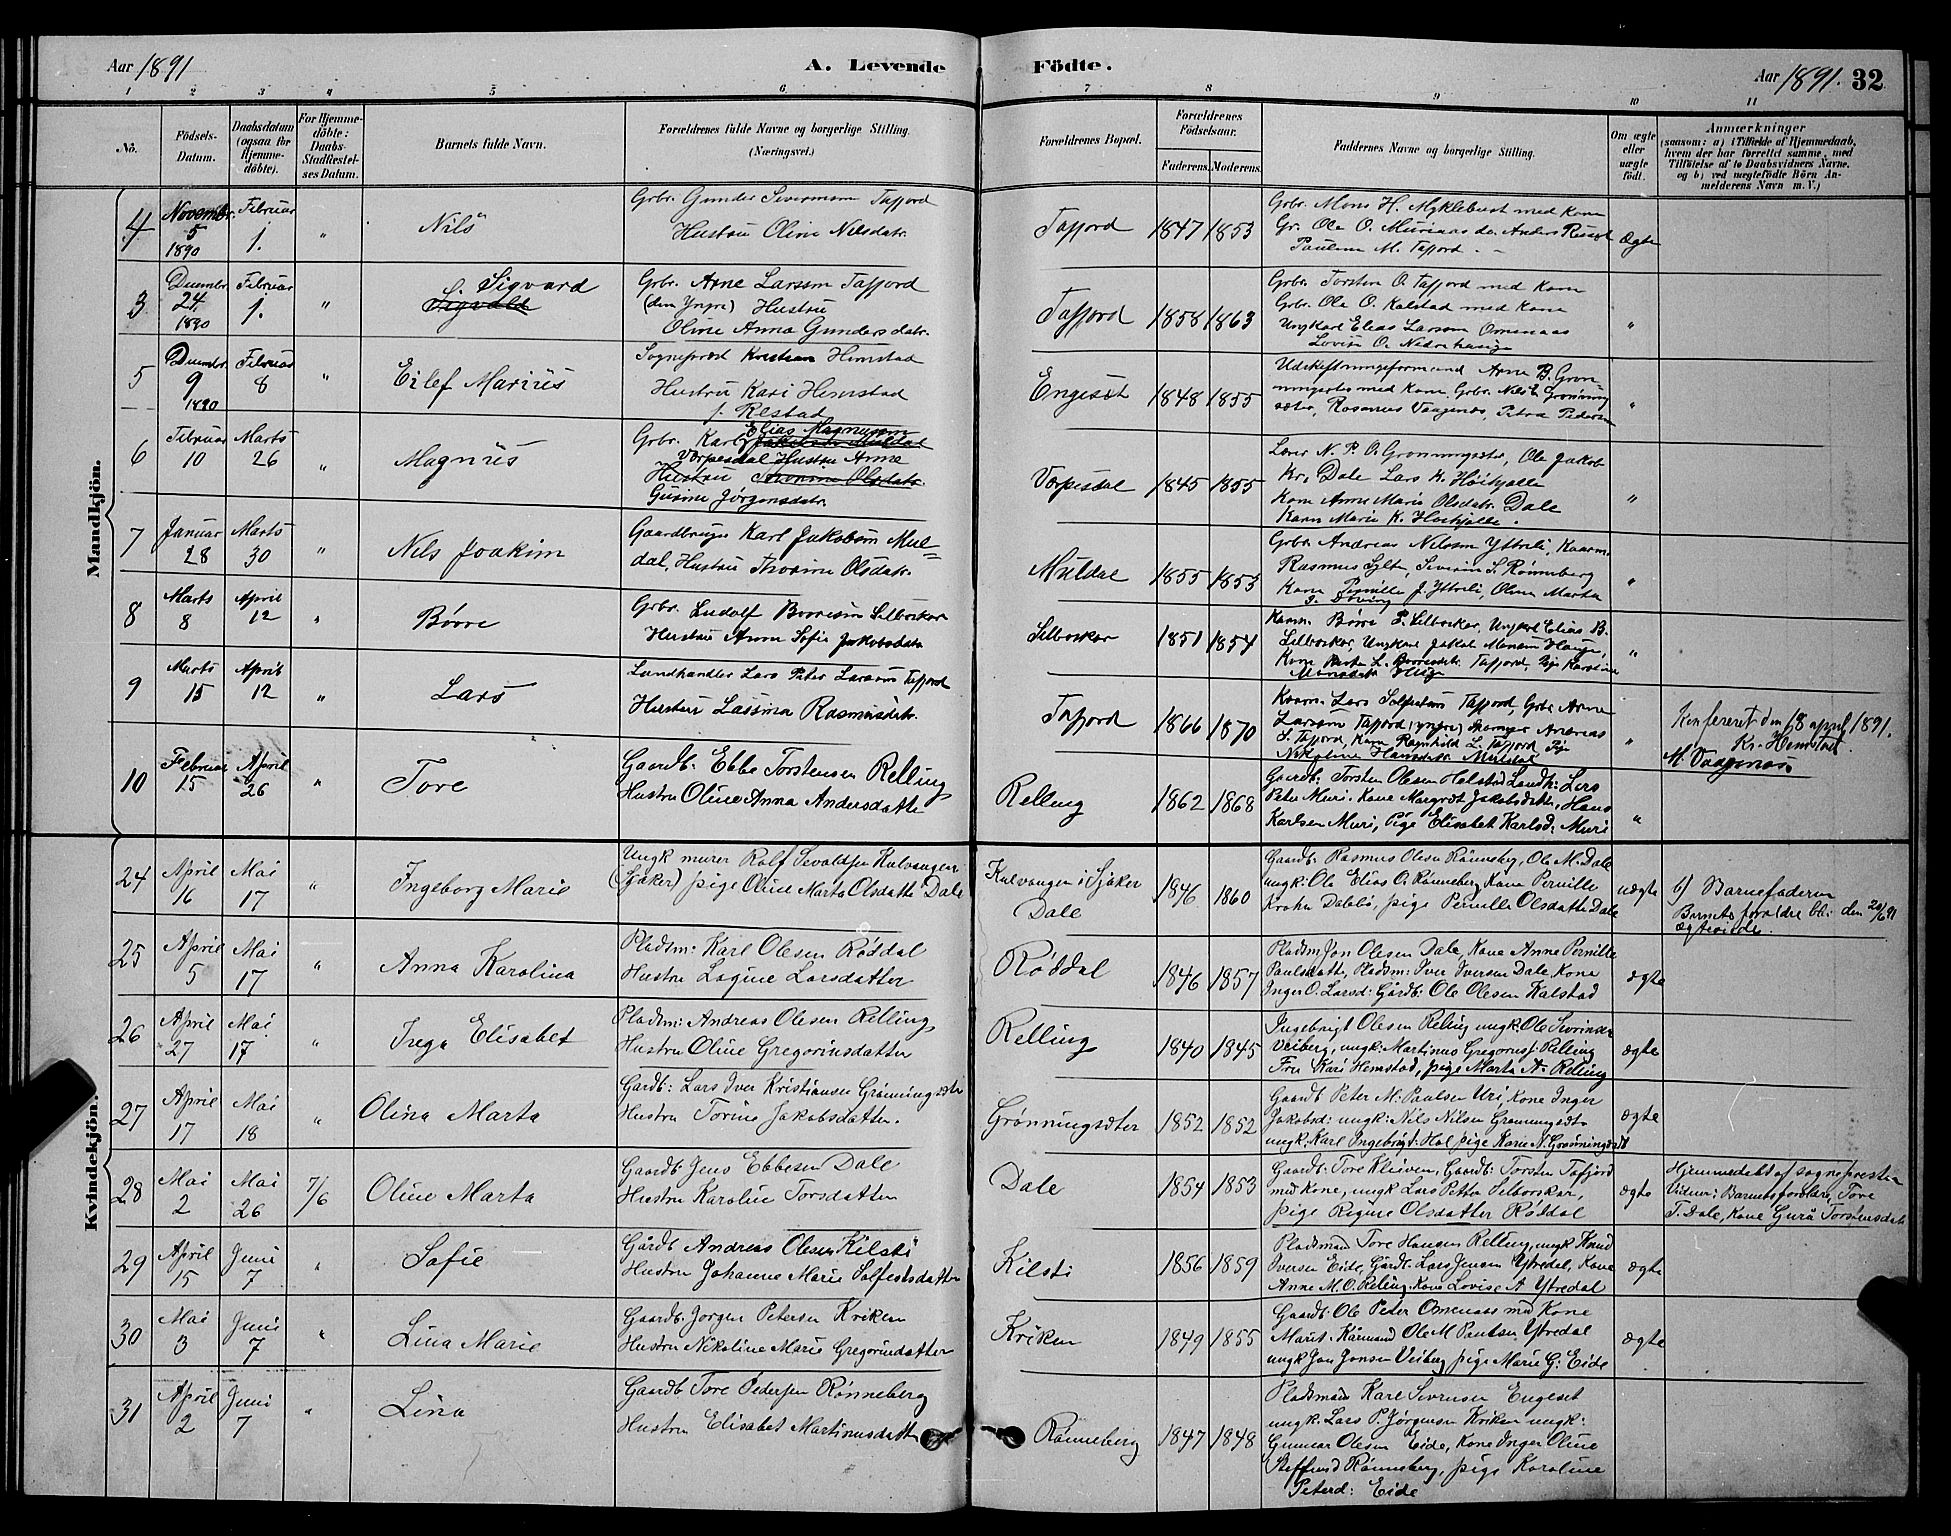 Aar 1891
A. Levende
Födte.
Aar 1891. 32
1 2 3 4 5 6 7 8 9 10 11
No.
Födsels-Datum.
Daabsdatum (ogsaa for Hjemme-döbte).
For Hjemme-döbte: Daabs-Stadfæstel-ses Datum.
Barnets fulde Navn.
Forældrenes fulde Navne og borgerlige Stilling.
(Næringsvei.)
Forældrenes Bopæl.
Forældrenes Födselsaar.
Faderens. Moderens.
Faddernes Navne og borgerlige Stilling.
Om ægte eller uægte födt.
Anmærkninger
(saasom: a) i Tilfælde af Hjemmedaab, hvem der har forrettet samme, med Tilföielse af to Daabsvidners Navne, og b) ved uægtefödte Börn An-melderens Navn m. V.)
Mandkjön.
4 Novembr. 5 1890 Februar 1. " Nils
Grbr. Gunder Tafjord
Hustru Oline Nilsdatr.
Tafjord 1847 1853
Grbr. Mons H. Myklebust med Kone
Gr. Ole O. Muriaas do. Anders
Pauline M. Tafjord
Ægte
3 Decembr 24 1890 Februar 1. " S. Sigvard
Sigvald
Grbr. Arne Larsen Tafjord
(den Yngre) Hustru
Oline Anna Gundersdatr.
Tafjord 1858 1863
Grbr. Torsten O. Tafjord med Kone
Grbr. Ole O. Kalstad med Kone
Ungkarl Elias Larsen Omenaas
Lovise O.
"
5 Decembr. 9 1890 Februar 8 " Eilef Marius
Sogneprest Kristian Hemstad
Hustru Kari Hemstad
f. Relstad
Engeset 1848 1855
Udskiftningsformand Arne B. Grön-
ningseter med Kone, Grbr. Nils Grönning
seter, Rasmus Vaagenes, Petra Pedersen
"
6 Februar 10 Marts 26 " Magnus
Grbr. Karl Elias Magnusen
Jakobsen Muldal
Vorpesdal Hustru Anne
Hustru Olsdatr.
Gurine Jörgensdatr.
Vorpesdal 1845 1855
Lærer N. P. O. Grönningseter, Ole Jakob
Kr. Dale Lars K. Höihjelle
Kone Anne Marie Olsdatr. Dale
Karen Marie K. Höihjelle.
"
7 Januar 28 Marts 30 " Nils Joakim
Gaardbruger Karl Jakobsen Mul-
dal, Hustru Olsdatr.
Muldal 1855 1853
Grbr. Andreas Nilsen Ytterli, Kaarm.
Rasmus Sylte, Severin S. Rönneberg
Kone Pernille J. Ytterli, Oline Marta
"
8 Marts 8 April 12 " Bööre
Grbr. Ludolf Böörsen Selboskar
Hustru Anne Sofie Jakobsdatr
Selboskar 1851 1854
Kaarm. Bööre P. Selboskar, Ungkarl Elias B.
Selboskar, Ungkarl Jakob Monsen Hauge,
Kone Marta L. Tafjord, Pige Karoline
Monsdatr Hauge
"
9 Marts 15 April 12 " Lars
Landhandler Lars Peter Larsen Tafjord
Hustru Lassina Rasmusdatr.
Tafjord 1866 1870
Kaarm. Lars Solfestsen Tafjord, Grbr. Arne
Larsen Tafjord (yngre) Andreas
S. Tafjord, Kone Ragnhild L. Tafjord Pige
Nikoline Hansdatr. Muldal
"
Konfereret den 18 april 1891.
Kr. Hemstad.
M. Vaagenæs.
10 Februar 15 April 26 " Tore
Gaardb. Ebbe Torstensen Relling
Hustru Oline Anna Andersdatter
Relling 1862 1868
Gaardb: Torsten Olesen Landh: Lars
Peter Muri. Kone Margret Jakobsdatter, Hans
Karlsen Muri, Pige Elisabet Karlsd: Muri
"
Kvindekjön.
24 April 16 Mai 17 " Ingeborg Marie
Ungk murer Rolf Sevaldsen Kulvangen
(Sjåker) pige Oline Marta Olsdatter Dale
Kulvangen i Sjåker
Dale
1846 1860
Gaardb: Rasmus Olesen Rönneberg, Ole M. Dale
ungk: Ole Elias O. Rönneberg Kone Pernille
Krohn Dalebö, pige Pernille Olsdatter Dale
uægte
b) Barnefaderen
Barnets forældre blev den 20/6 91
ægteviede.
25 April 5 Mai 17 " Anna Karolina
Pladsm: Karl Olesen Röddal
Hustru Lagine Larsdatter
Röddal 1846 1857
Pladsm Jon Olesen Dale, Kone Anne Pernille
Paulsdatter, Pladsm: Iver Iversen Dale, Kone
Inger O. Larsd: Gårdb: Ole Olesen Kalstad
ægte
26 April 27 Mai 17 " Inga Elisabet
Pladsm: Andreas Olesen Relling,
Hustru Oline Gregoriusdatter
Relling 1840 1845
Ingebrigt Olesen Relling ungk: Ole Severinsen
Veiberg, ungk: Martinus Gregoriusf: Relling
Fru Kari Hemstad, pige Marta A. Relling
ægte
27 April 17 Mai 18 " Olina Marta
Gardb: Lars Iver Kristiansen Grönningseter
Hustru Torine Jakobsdatter.
Grönningseter 1852 1852
Gaardb Peter M. Paulsen Uri, Kone Inger
Jakobsd: ungk: Nils Nilsen Grönningseter
ungk. Karl Ingebrigt: Hol pige Karen N. Grönningseter
ægte
28 Mai 2 Mai 26 7/6 Oline Marta
Gaardb: Jens Ebbesen Dale
Hustru Karoline Torsdatter
Dale 1854 1853
Gaardb: Tore Kleiven, Gaardb: Torsten Tafjord
med Kone, ungk Lars Petter Selboskar,
pige Regine Olsdatter Röddal
ægte
Hjemmedöbt af sognepresten
Vidner: Barnets forældre, Tore
T. Dale, Kone Guro Torstensdatr
29 April 15 Juni 7 " Sofie
Gårdb Andreas Olesen Kilsti
Hustru Johanne Marie Solfestsdatter
Kilsti 1856 1859
Pladsmand Tore Hansen Relling, ungk Knud
Iversen Eide, Gårdb. Lars Jensen Ytredal, Kone
Anne M. O. Relling, Kone Lovise A Ytredal
ægte
30 Mai 3 Juni 7 " Lina Marie
Gaardb. Jörgen Petersen Kriken
Hustru Nikoline Marie Gregoriusdatter
Kriken 1849 1855
Gaardb: Ole Peter Omenaas med Kone
Marit. Kårmand Ole M Paulsen Ytredal
ungk Jon Jonsen Veiberg pige Marie G: Eide
ægte
31 April 2 Juni 7 " Lina
Gaardb Tore Pedersen Rönneberg
Hustru Elisabet Martinusdatter
Rönneberg 1847 1848
Pladsmand Karl Severinsen Engeset
ungk: Lars P. Jörgensen Kriken ungk:
Gunnar Olesen Eide, Kone Inger Oline
Steffensd Rönneberg, pige Karoline
Peterd: Eide